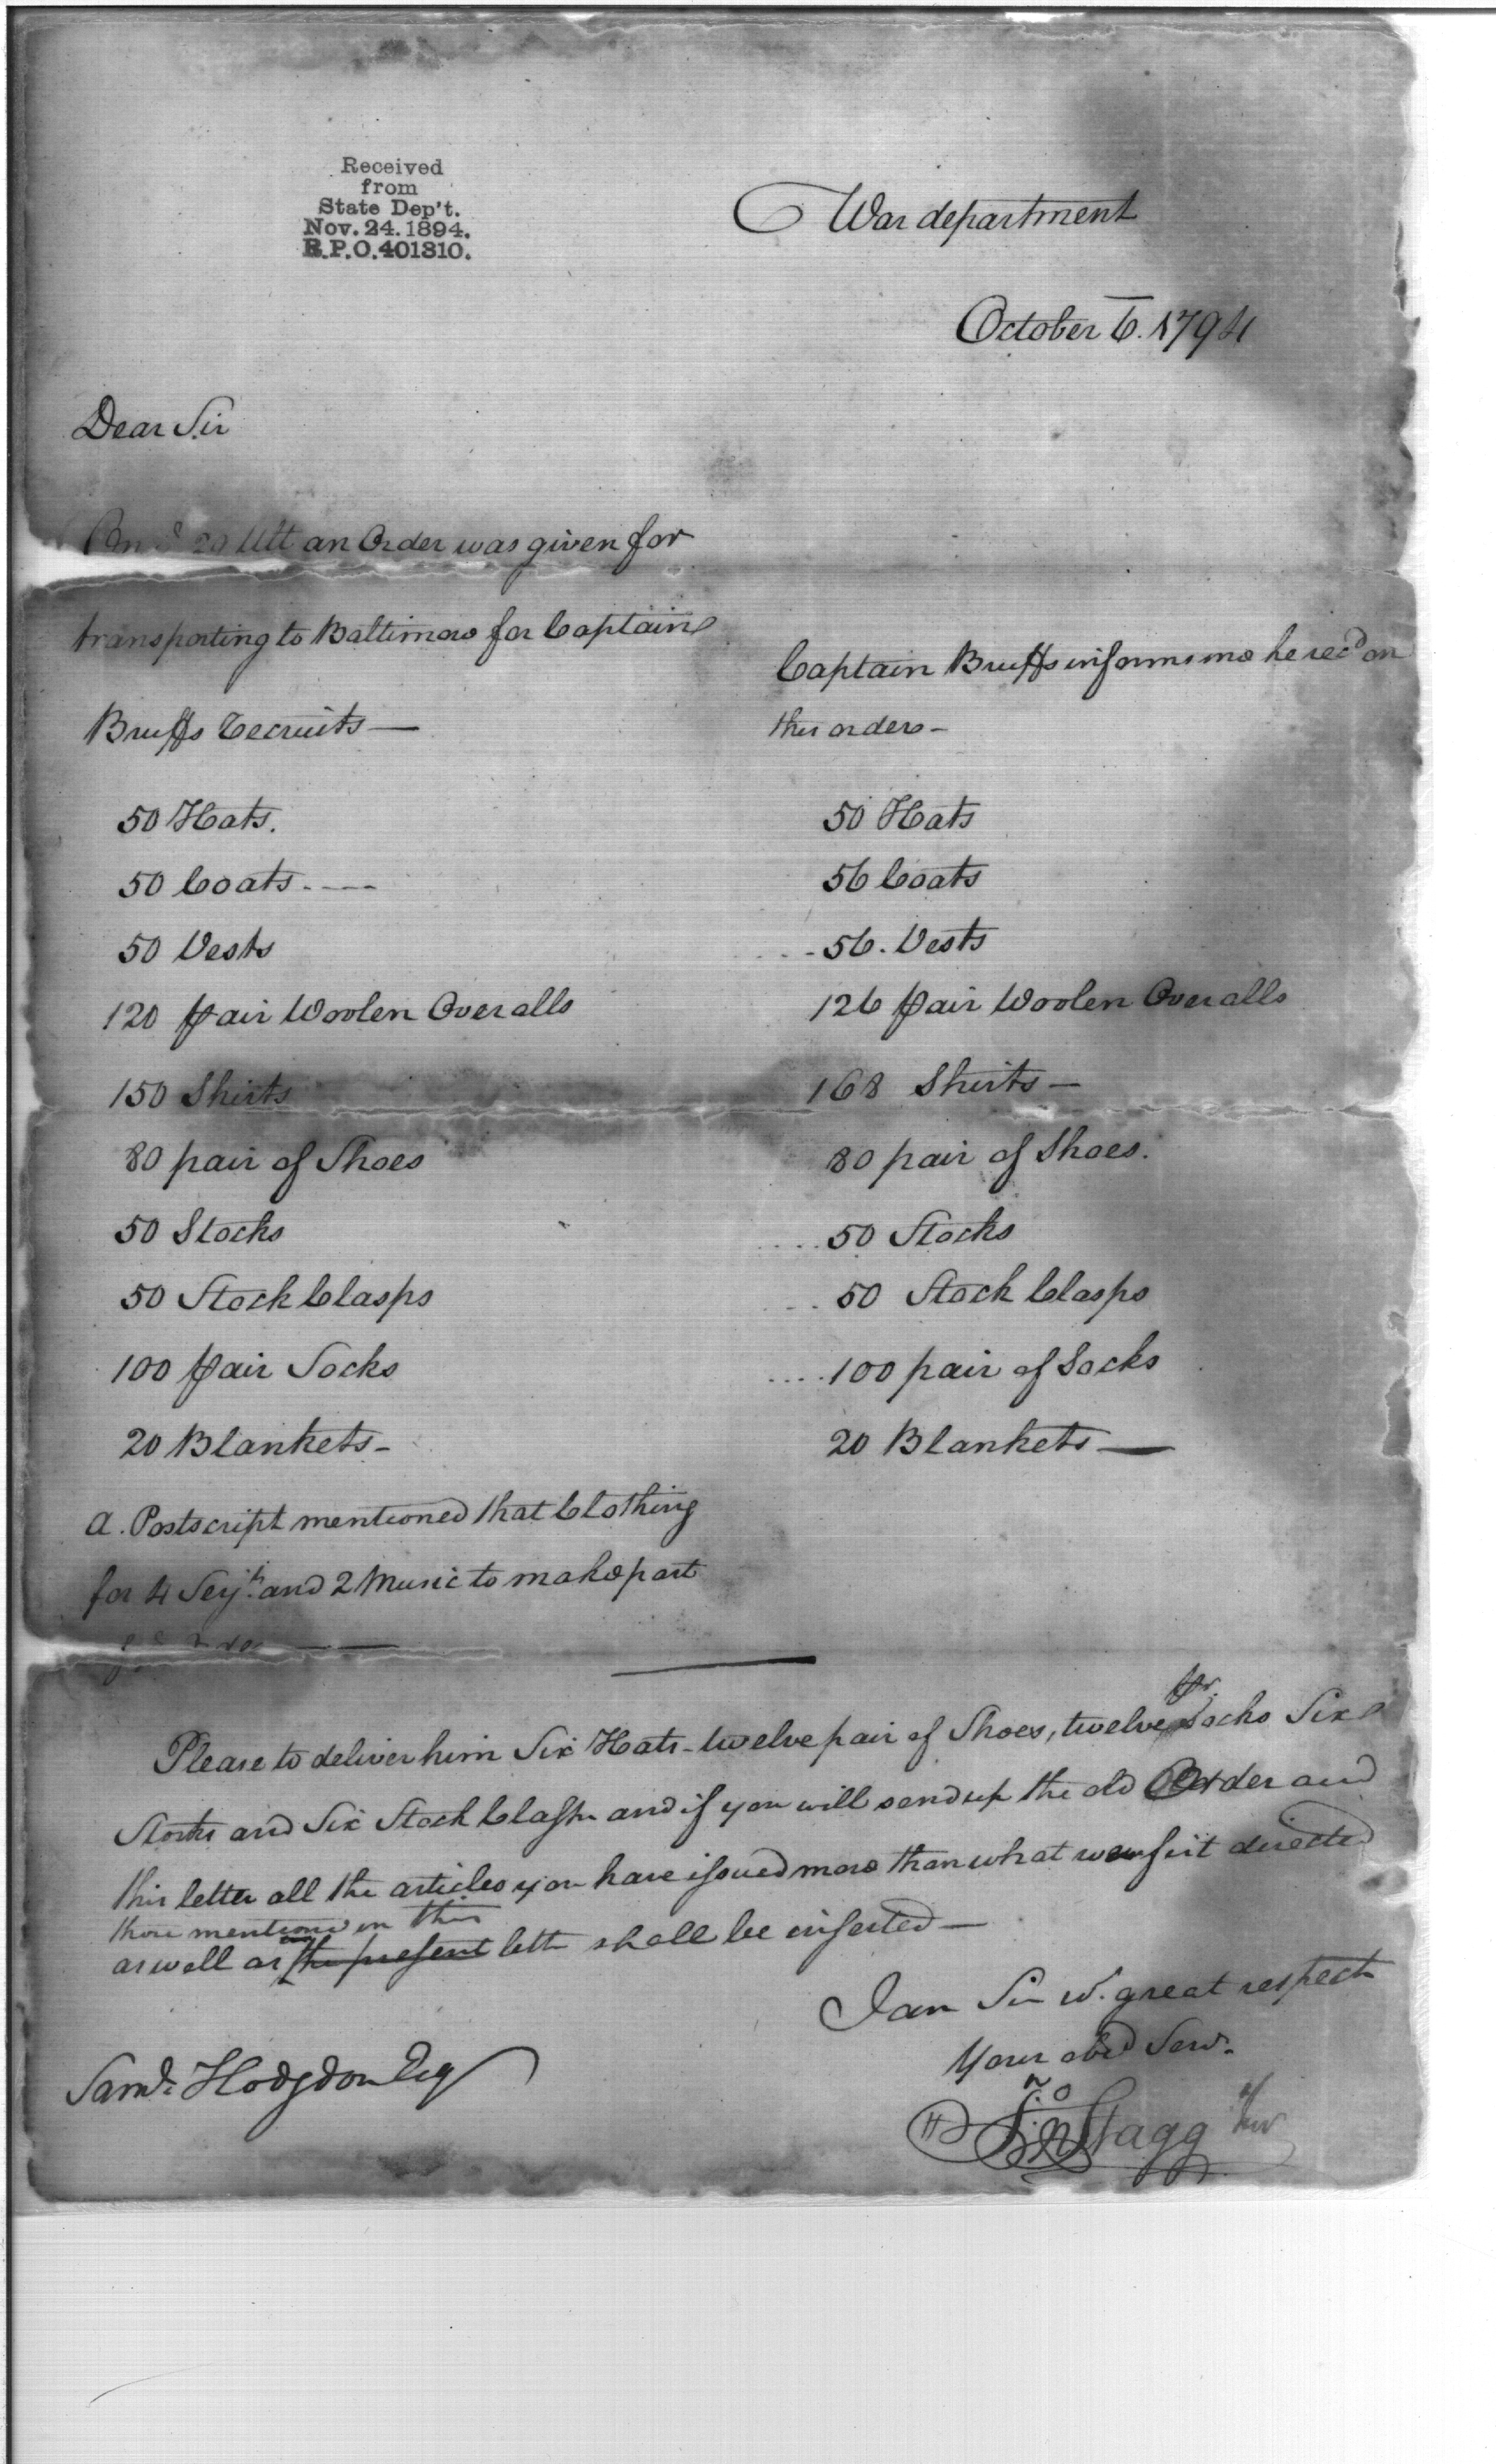 Received
from
State Dep't.
Nov. 24. 1894.
R.P.O. 401310.
War department
October 6. 1794
Dear Sir
On 20 Ult an Order was given for
transporting to Baltimore for Captain
Bruffs recruits —
50 Hats.
50 Coats - - - -
50 Vests
120 pair Woolen Overalls
150 Shirts
80 pair of Shoes
50 Stocks
50 Stock Clasps
100 pair Socks
20 Blankets -
a. Postscript mentioned that Clothing
for 4 Serjts. and 2 Music to make part
Captain Bruffs informs me he recd on
this order -
50 Hats
56 Coats
- - - 56. Vests
126 pair Woolen Overalls
168 Shirts —
80 pair of Shoes.
.... 50 Stocks
... 50 Stock Clasps
.... 100 pair of Socks
20 Blankets —
Please to deliver him Six Hats - twelve pair of Shoes, twelve pr. Socks Six
Stocks and Six Stock Clasps and if you will send up the old Order and
this letter all the articles you have issued more than what were first directed
those mentioned in this
as well as the present lettr shall be inserted —
I am Sir w. great respect
Your obed Serv.
Jno Stagg Jur
Saml. Hodgdon Esq